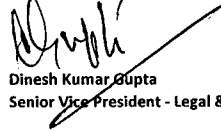 Dinesh Kumar Gupta
Senior Vice President - Legal &